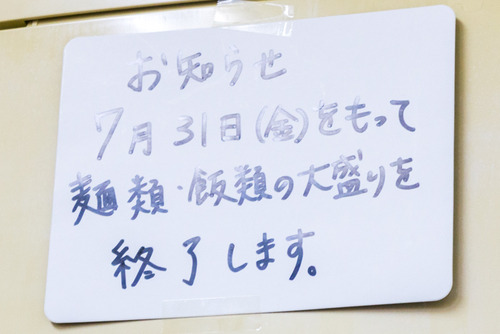 お知らせ
7月31日(金)をもって
麺類・飯類の大盛りを
終了します。